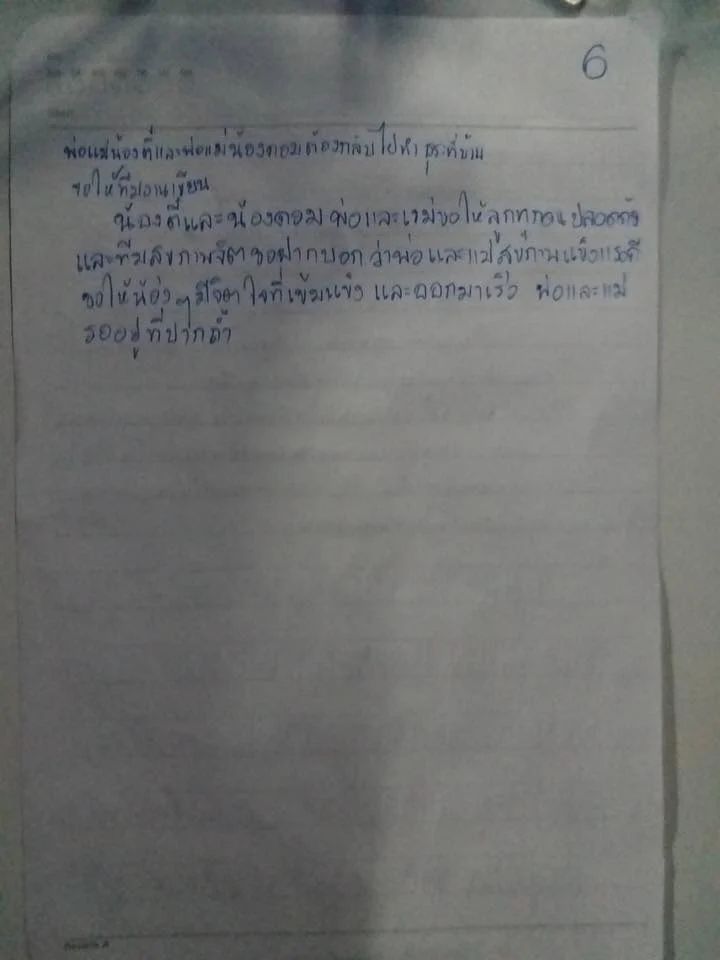 6
พ่อแม่น้องตี๋และพ่อแม่น้องดอมต้องกลับไปทำธุระที่บ้าน
ขอให้ทีมงานเขียน
น้องตี๋และน้องดอม พ่อและแม่ขอให้ลูกทุกคนปลอดภัย
และทีมสุขภาพจิตขอฝากบอกว่าพ่อและแม่สุขภาพแข็งแรงดี
ขอให้น้องๆ มีจิตใจที่เข้มแข็ง และออกมาเร็ว พ่อและแม่
รออยู่ที่ปากถ้ำ